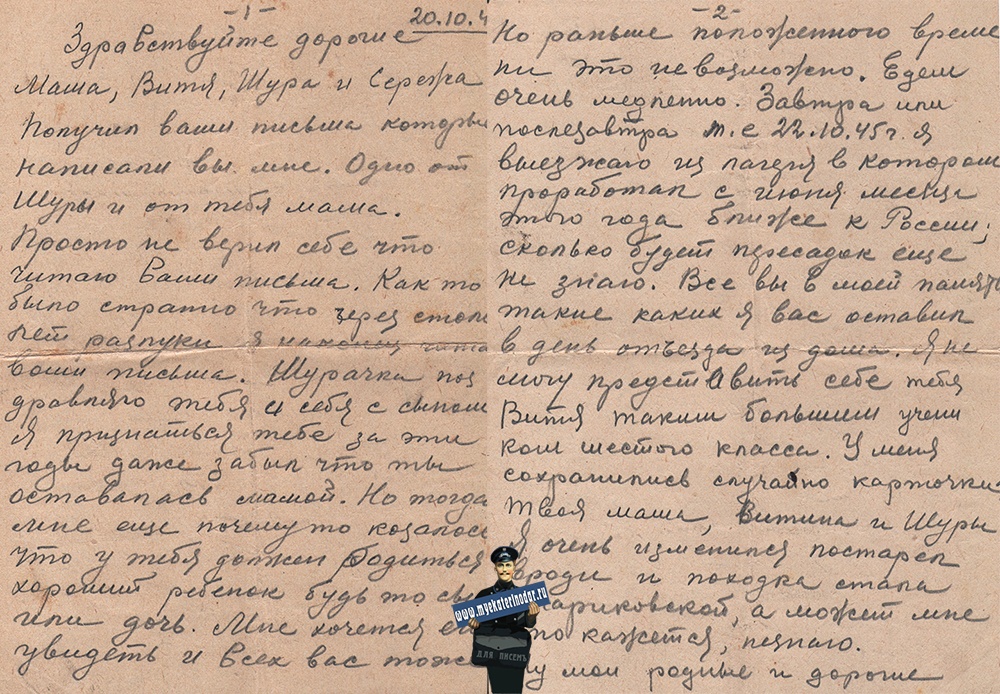 -1-
20.10.4
Здравствуйте дорогие
Маша, Витя, Шура и Сережа
Получил ваши письма которы
написали вы мне. Одно от
Шуры и от тебя маша.
Просто не верил себе что
читаю ваши письма. Как то
было странно что через столь
лет разлуки я наконец чита
ваши письма. Шурачка поз
дравляю тебя и себя с сыном
Я признаться тебе за эти
годы даже забыл что ты
оставалась мамой. Но тогда
мне еще почему то козалось
что у тебя должен родиться
хороший ребенок будь то сы
или дочь. Мне хочется ег
увидеть и всех вас тоже
-2-
Но раньше положенного време
ни это невозможно. Едем
очень медленно. Завтра или
послезавтра т.е 22.10.45г. я
выезжаю из лагеря в котором
проработал с июня месяца
этого года ближе к России;
сколько будет пересадок еще
не знаю. Все вы в моей памят
такие каких я вас оставил
в день отъезда из дома. Я не
могу представить себе тебя
Витя таким большим учени
ком шестого класса. У меня
сохранились случайно карточки
твоя маша, Витина и Шуры
Я очень изменился постарел
вроди и походка стала
стариковской, а может мне
это кажется, незнаю.
Ну мои родные и дорогие
www.myekaterinodar.ru
ДЛЯ ПИСЕМЪ